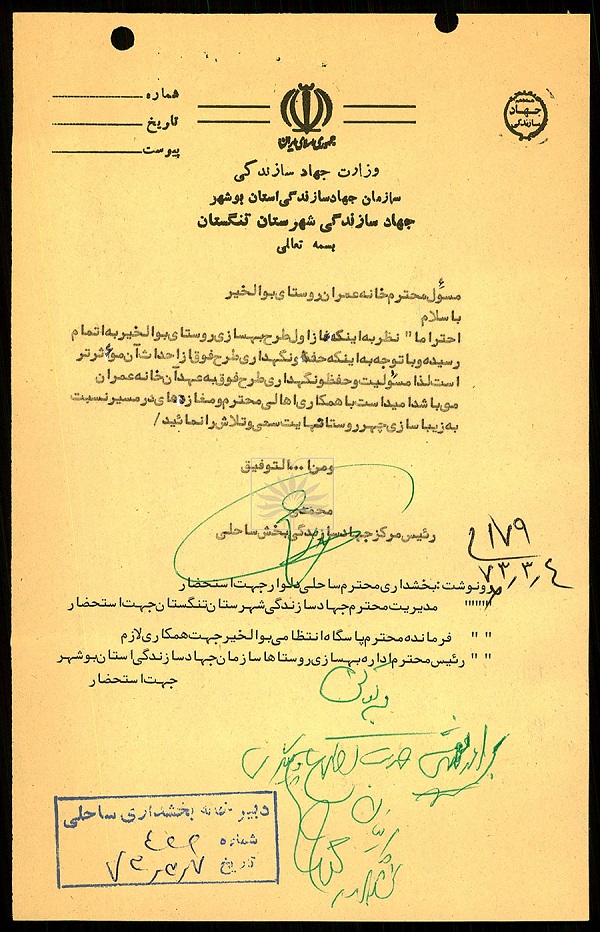 شماره
تاریخ
پیوست
جمهوری اسلامی ایران
جهاد
سازندگی
وزارت جهاد سازندگی
سازمان جهاد سازندگی استان بوشهر
جهاد سازندگی شهرستان تنگستان
بسمه تعالی
مسؤل محترم خانه عمران روستای بوالخیر
با سلام
احتراما " نظر به اینکه فاز اول طرح بهسازی روستای بوالخیر به اتمام
رسیده و با توجه به اینکه حفظ و نگهداری طرح فوق از احداث آن مؤثرتر
است لذا مسؤلیت و حفظ و نگهداری طرح فوق به عهد آن خانه عمران
می باشد امید است با همکاری اهالی محترم و مغازه های در مسیر نسبت
به زیبا سازی چهر روستا نهایت سعی و تلاش را نمائید /
ومن ا... التوفیق
محمدی
رئیس مرکز جهاد سازندگی بخش ساحلی
۱۷۹
۷۳٫۳٫۴
رونوشت : بخشداری محترم ساحلی دلوار جهت استحضار
""" مدیریت محترم جهاد سازندگی شهرستان تنگستان جهت استحضار
" " فرمانده محترم پاسگاه انتظامی بوالخیر جهت همکاری لازم
" " رئیس محترم اداره بهسازی روستاها سازمان جهاد سازندگی استان بوشهر
جهت استحضار
دبیرخانه بخشداری ساحلی
شماره
تاریخ